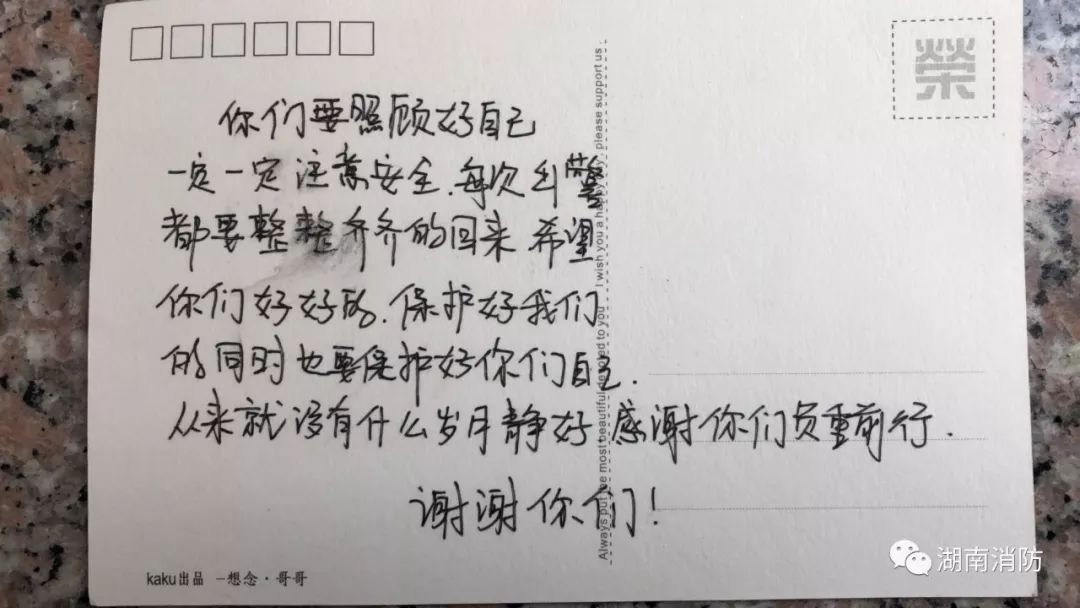 榮
Always put the most beautiful devoted to you I wish you a happy please support us
你们要照顾好自己
一定一定注意安全.每次出警
都要整整齐齐的回来 希望
你们好好的.保护好我们
的同时也要保护好你们自己.
从来就没有什么岁月静好 感谢你们负重前行.
谢谢你们!
kaku出品 -想念·哥哥
湖南消防